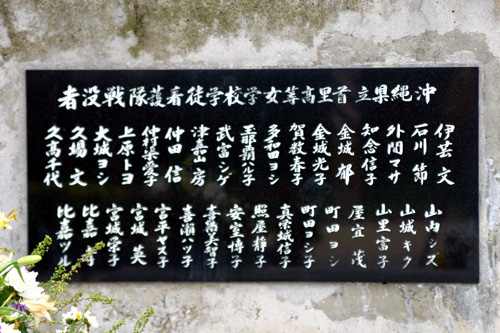 沖縄県立首里高等女学校学徒看護隊戦没者
伊芸 文
石川 節
外間マサ
知念信子
金城 郁
金城光子
賀数春子
多和田ヨシ
玉那覇ハル子
武富シゲ
津嘉山 房
仲田 信
仲村渠愛子
上原トヨ
大城ヨシ
久場 文
久高千代
山内シズ
山城キク
山里富子
屋宜
町田ヨシ
町田ヨシ子
真栄城信子
照屋静子
安室博子
喜瀬ハツ子
宮平ヤス子
宮城 英
宮城栄子
比嘉
比嘉ツル